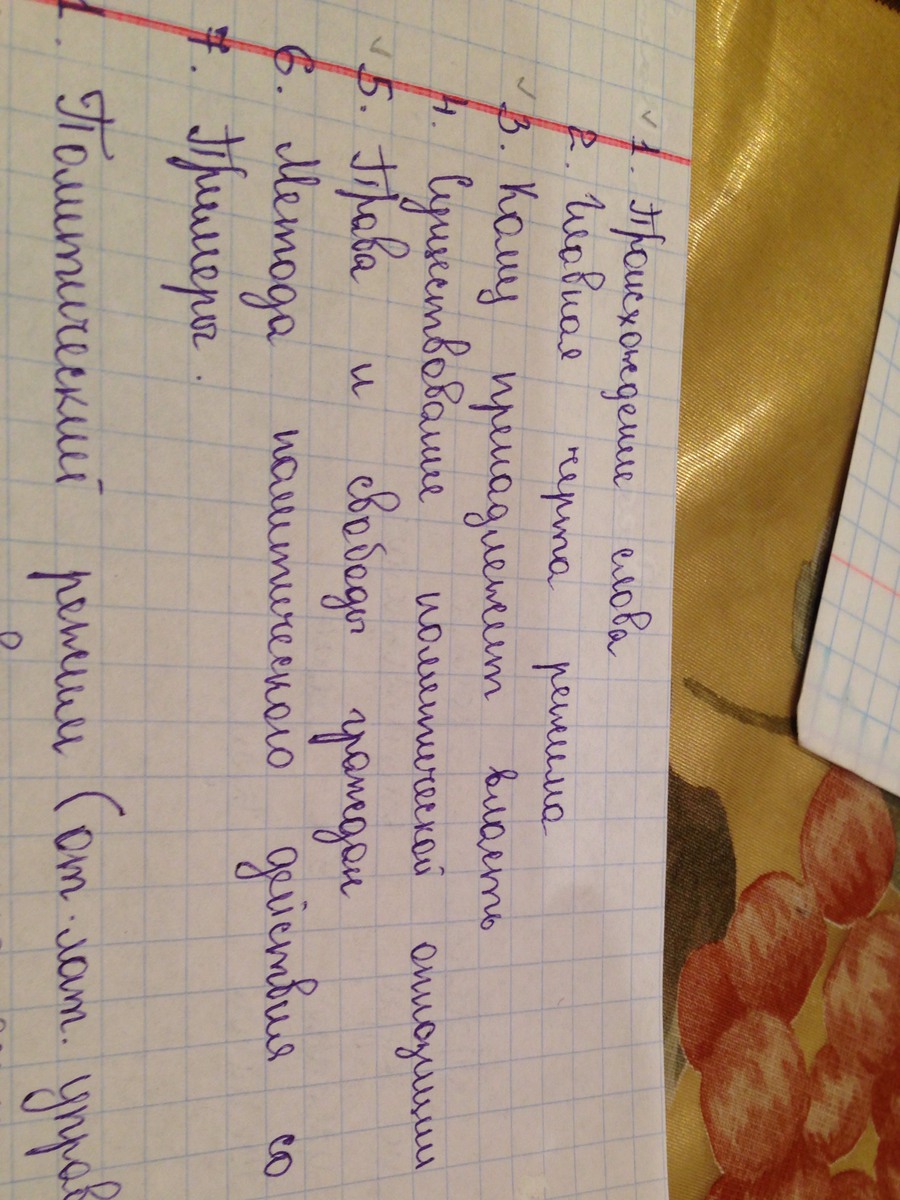 1. Происхождение слова
2. Главная черта режима
3. Кому принадлежит власть
4. Существование политической оппозиции
5. Права и свободы граждан
6. Метода политического действия со
7. Примеры.
1. Политический режим (от. лат. управ